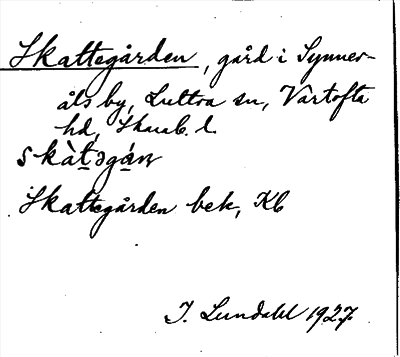 Skattegården, gård i Synner-
åls by, Luttra sn, Vartofta
hd, Skarab. l.
skàt̠əgáṇ
Skattegården bek, Kb
I. Lundahl 1927.